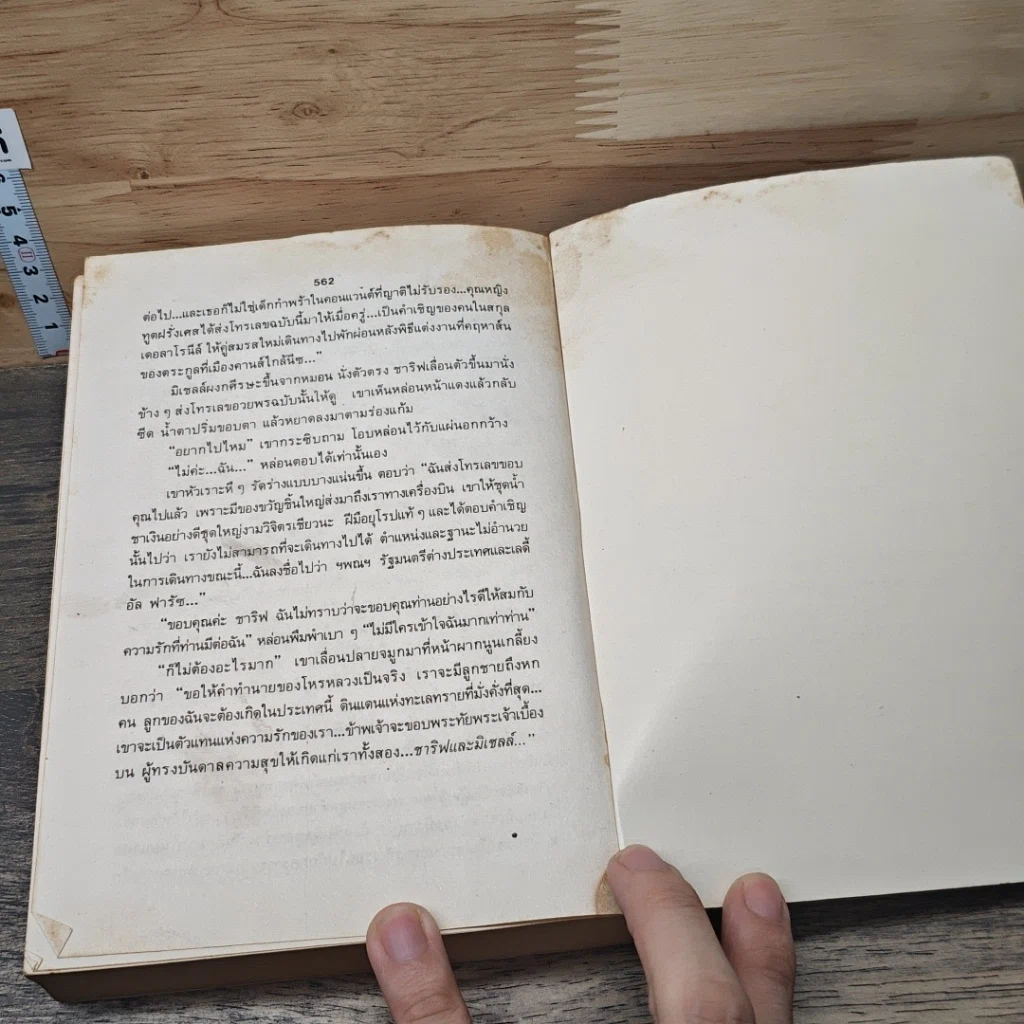 562
ต่อไป...และเธอก็ไม่ใช่เด็กกำพร้าในคอนแวนต์ที่ญาติไม่รับรอง...คุณหญิง
ทูตฝรั่งเศสได้ส่งโทรเลขฉบับนี้มาให้เมื่อครู่...เป็นคำเชิญของคนในสกุล
เดอลาโรนีล์ ให้คู่สมรสใหม่เดินทางไปพักผ่อนหลังพิธีแต่งงานที่คฤหาส์น
ของตระกูลที่เมืองคานส์ใกล้นีซ..."
มิเชลล์ผงกศีรษะขึ้นจากหมอน นั่งตัวตรง ชาริฟเลื่อนตัวขึ้นมานั่ง
ข้าง ๆ ส่งโทรเลขอวยพรฉบับนั้นให้ดู เขาเห็นหล่อนหน้าแดงแล้วกลับ
ซีด น้ำตาปริ่มขอบตา แล้วหยาดลงมาตามร่องแก้ม
"อยากไปไหม" เขากระซิบถาม โอบหล่อนไว้กับแผ่นอกกว้าง
"ไม่ค่ะ...ฉัน..." หล่อนตอบได้เท่านั้นเอง
เขาหัวเราะหึ ๆ รัดร่างแบบบางแน่นขึ้น ตอบว่า "ฉันส่งโทรเลขขอบ
คุณไปแล้ว เพราะมีของขวัญชิ้นใหญ่ส่งมาถึงเราทางเครื่องบิน เขาให้ชุดน้ำ
ชาเงินอย่างดีชุดใหญ่งามวิจิตรเชียวนะ ฝีมือยุโรปแท้ ๆ และได้ตอบคำเชิญ
นั้นไปว่า เรายังไม่สามารถที่จะเดินทางไปได้ ตำแหน่งและฐานะไม่อำนวย
ในการเดินทางขณะนี้...ฉันลงชื่อไปว่า ฯพณฯ รัฐมนตรีต่างประเทศและเลดี้
อัล ฟารัซ..."
"ขอบคุณค่ะ ชาริฟ ฉันไม่ทราบว่าจะขอบคุณท่านอย่างไรดีให้สมกับ
ความรักที่ท่านมีต่อฉัน" หล่อนพึมพำเบา ๆ "ไม่มีใครเข้าใจฉันมากเท่าท่าน"
"ก็ไม่ต้องอะไรมาก" เขาเลื่อนปลายจมูกมาที่หน้าผากนูนเกลี้ยง
บอกว่า "ขอให้คำทำนายของโหรหลวงเป็นจริง เราจะมีลูกชายถึงหก
คน ลูกของฉันจะต้องเกิดในประเทศนี้ ดินแดนแห่งทะเลทรายที่มั่งคั่งที่สุด...
เขาจะเป็นตัวแทนแห่งความรักของเรา...ข้าพเจ้าจะขอบพระทัยพระเจ้าเบื้อง
บน ผู้ทรงบันดาลความสุขให้เกิดแก่เราทั้งสอง...ชาริฟและมิเชลล์..."
5
4
3
2
1